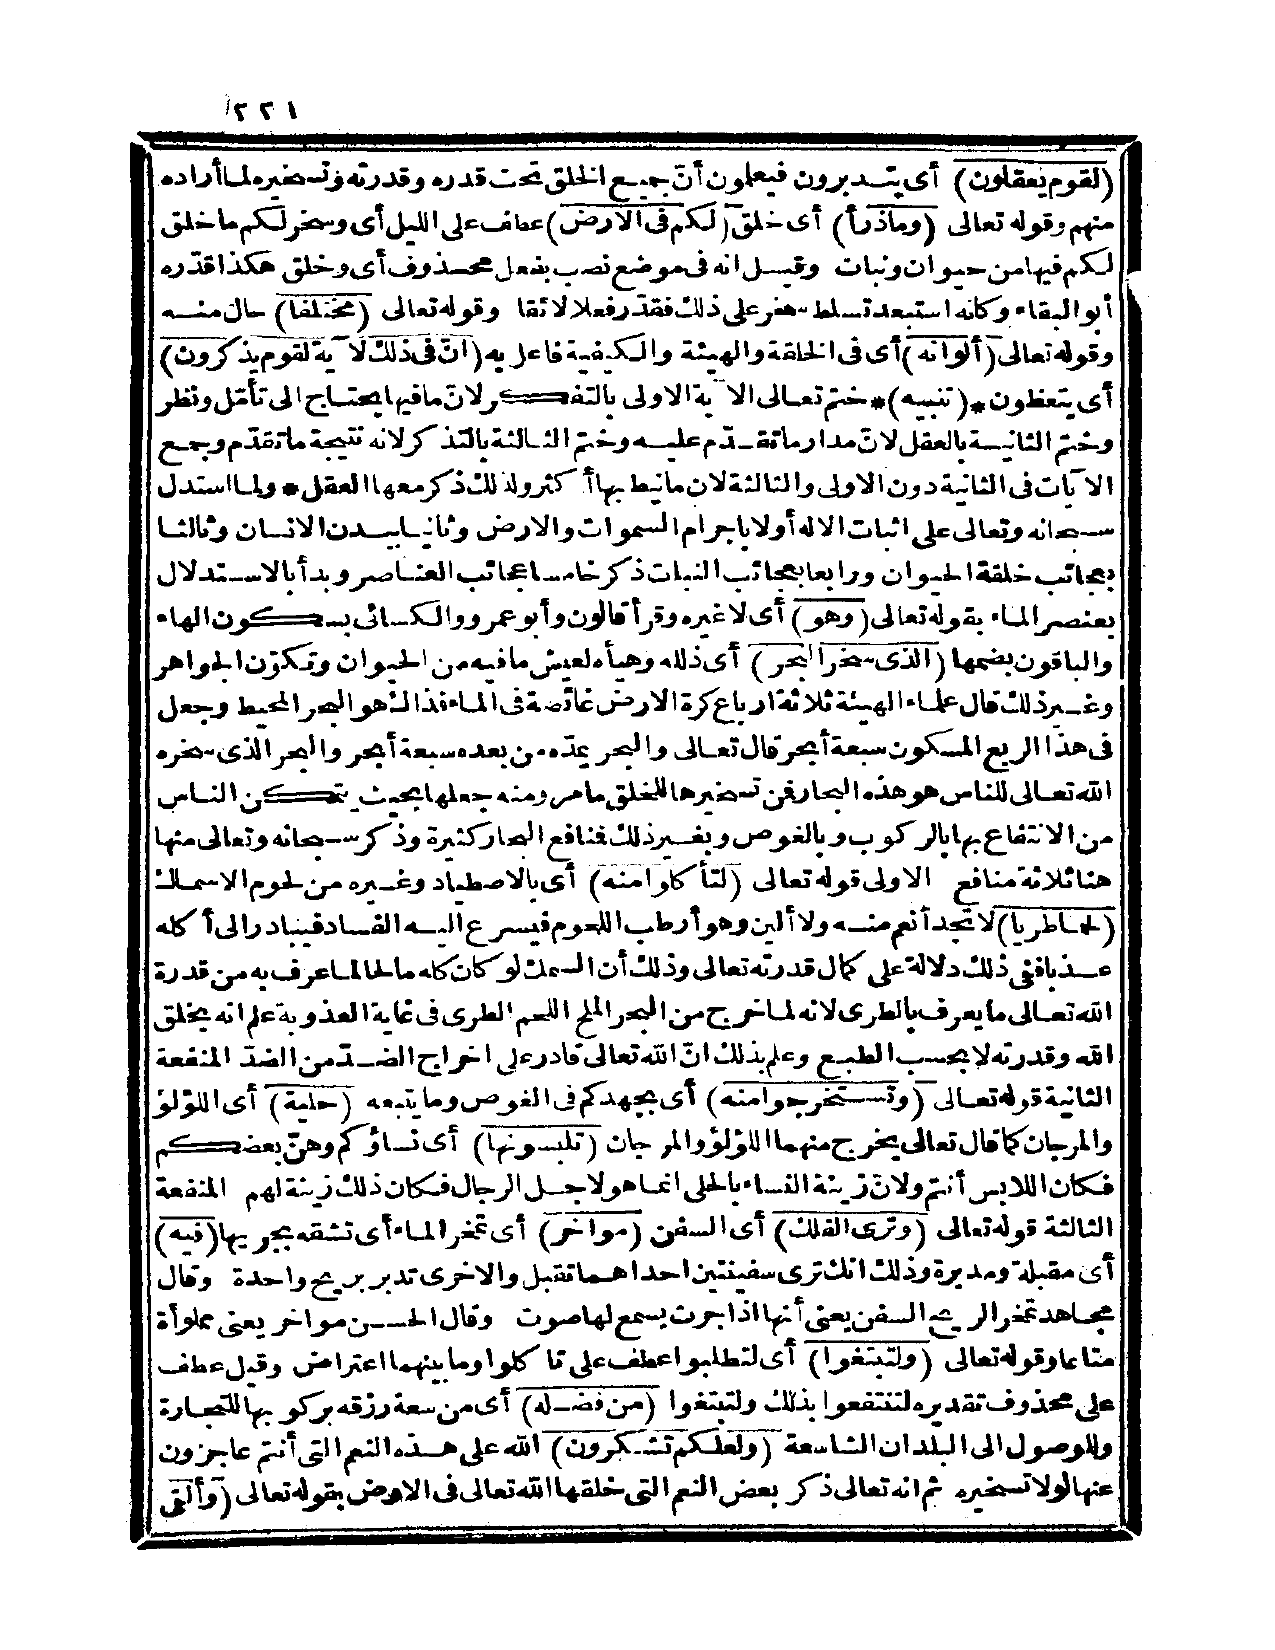 ٢٢١
(لقوم يعقلون) أى يتدبرون فيعلمون أنّ جميع الخلق تحت قدره وقدرته وتسخيره لما أراده
منهم وقوله تعالى (وماذرأ) أى خلق (لكم فى الارض) عطف على الليل أى وسخر لكم ما خلق
لكم فيها من حيوان ونبات وقيل انه فى موضع نصب بفعل محذوف أى وخلق هكذا قدّره
أبو البقاء وكأنه استبعد تسلط سخر على ذلك فقدّر فعلا لائقا وقوله تعالى (مختلفا) حال منه
وقوله تعالى (ألوانه) أى فى الخلقة والهيئة والكيفية فاعل به (انّ فى ذلك لآية لقوم يذكرون)
أى يتعظون *(تنبيه)* ختم تعالى الآية الاولى بالتفكر لانّ ما فيها يحتاج الى تأمّل ونظر
وختم الثانية بالعقل لانّ مدار ما تقدّم عليه وختم الثالثة بالتذكر لانه نتيجة ما تقدّم وجمع
الآيات فى الثانية دون الاولى والثالثة لان ما نيط بها أكثر ولذلك ذكر معها العقل * ولما استدل
سبحانه وتعالى على اثبات الاله أولا باجرام السموات والارض وثانيا ببدن الانسان وثالثا
بعجائب خلقة الحيوان ورابعا بعجائب النبات ذكر خامسا عجائب العناصر وبدأ بالاستدلال
بعنصر الماء بقوله تعالى (وهو) أى لا غيره وقرأ قالون وأبو عمرو والكسائى بسكون الهاء
والباقون بضمها (الذى سخر البحر) أى ذلله وهيأه لعيش ما فيه من الحيوان وتكوّن الجواهر
وغير ذلك قال علماء الهيئة ثلاثة ارباع كرة الارض غائصة فى الماء فذاك هو البحر المحيط وجعل
فى هذا الربع المسكون سبعة أبحر قال تعالى والبحر يمدّه من بعده سبعة أبحر والبحر الذى سخره
الله تعالى للناس هو هذه البحار فمن تسخيرها للخلق ما مر ومنه جعلها بحيث يتمكن الناس
من الانتفاع بها بالركوب وبالغوص وبغير ذلك فمنافع البحار كثيرة وذكر سبحانه وتعالى منها
هنا ثلاثة منافع الاولى قوله تعالى (لتأكلوا منه) أى بالاصطياد وغيره من لحوم الاسماك
(لحما طريا) لا تجد أنعم منه ولا ألين وهو أرطب اللحوم فيسرع اليه الفساد فيبادر الى أكله
عذبا فنى ذلك دلالة على كمال قدرته تعالى وذلك أن السمك لو كان كله مالحا لما عرف به من قدرة
الله تعالى ما يعرف بالطرى لانه لما خرج من البحر الملح اللحم الطرى فى غاية العذوبة علم انه بخلق
الله وقدرته لا بحسب الطبع وعلم بذلك انّ الله تعالى قادر على اخراج الضدّ من الضدّ المنفعة
الثانية قوله تعالى (وتستخرجوا منه) أى بجهدكم فى الغوص وما يتبعه (حلية) أى اللؤلؤ
والمرجان كما قال تعالى يخرج منهما اللؤلؤ والمرجان (تلبسونها) أى نساؤكم وهنّ بعضكم
فكان اللابس أنتم ولانّ زينة النساء بالحلى انما هو لاجل الرجال فكان ذلك زينة لهم المنفعة
الثالثة قوله تعالى (وترى الفلك) أى السفن (مواخر) أى تمخر الماء أى تشقه بجريها (فيه)
أى مقبلة ومدبرة وذلك انك ترى سفينتين احداهما تقبل والاخرى تدبر بريح واحدة وقال
مجاهد تمخر الريح السفن يعنى أنها اذا جرت يسمع لها صوت وقال الحسن مواخر يعنى مملوأة
متاعا وقوله تعالى (ولتبتغوا) أى لتطلبوا عطف على تأكلوا وما بينهما اعتراض وقيل عطف
على محذوف تقديره لتنتفعوا بذلك ولتبتغوا (من فضله) أى من سعة رزقه بركوبها للتجارة
وللوصول الى البلدان الشاسعة (ولعلكم تشكرون) الله على هذه النعم التى أنتم عاجزون
عنها لولا تسخيره ثم انه تعالى ذكر بعض النعم التى خلقها الله تعالى فى الارض بقوله تعالى (وألقى